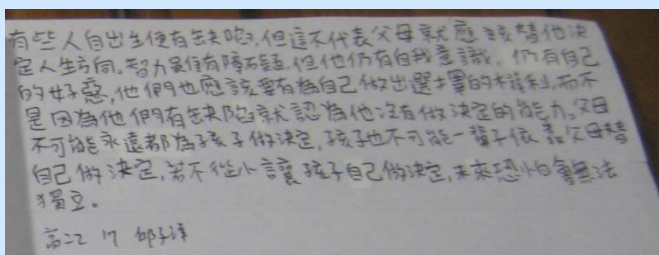 有些人自出生便有缺陷,但這不代表父母就應該替他決
定人生方向。智力雖有障礙,但他仍有自我意識,仍有自己
的好惡,他們也應該要有為自己做出選擇的權利,而不
是因為他們有缺陷就認為他沒有做決定的能力。父母
不可能永遠都為孩子做決定,孩子也不可能一輩子依靠父母替
自己做決定,若不從小讓孩子自己做決定,未來恐怕會無法
獨立。
高二2 17 邱子